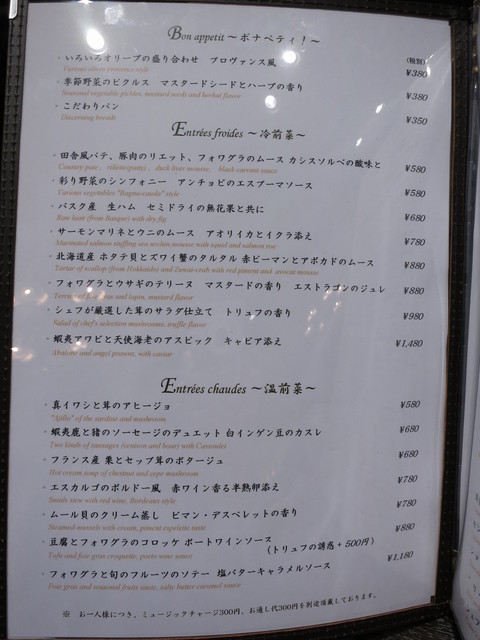 Bon appetit ～ボナペティ！～
(税別)
・いろいろオリーブの盛り合わせ プロヴァンス風 ¥380
Various olives provence style
・季節野菜のピクルス マスタードシードとハーブの香り ¥380
Seasonal vegetable pickles, mustard seeds and herbal flavor
・こだわりパン ¥350
Discerning breads
Entrées froides ～冷前菜～
・田舎風パテ、豚肉のリエット、フォワグラのムース カシスソルベの酸味と ¥580
Country pate, rillette(party), duck liver mousse, black currant sauce
・彩り野菜のシンフォニー アンチョビのエスプーマソース ¥580
Various vegetables "Bagna-cauda" style
・バスク産 生ハム セミドライの無花果と共に ¥680
Raw ham (from Basque) with dry fig
・サーモンマリネとウニのムース アオリイカとイクラ添え ¥780
Marinated salmon stuffing sea urchin mousse with squid and salmon roe
・北海道産 ホタテ貝とズワイ蟹のタルタル 赤ピーマンとアボカドのムース ¥880
Tartar of scallop (from Hokkaido) and Zuwai-crab with red piment and avocat mousse
・フォワグラとウサギのテリーヌ マスタードの香り エストラゴンのジュレ ¥880
Terrine of foie gras and lapin, mustard flavor
・シェフが厳選した茸のサラダ仕立て トリュフの香り ¥980
Salad of chef's selection mushrooms, truffle flavor
・蝦夷アワビと天使海老のアスピック キャビア添え ¥1,480
Abalone and angel prawns, with caviar
Entrées chaudes ～温前菜～
・真イワシと茸のアヒージョ ¥580
"Ajillo" of the sardine and mushroom
・蝦夷鹿と猪のソーセージのデュエット 白インゲン豆のカスレ ¥680
Two kinds of sausages (venison and boar) with Cassoulet
・フランス産 栗とセップ茸のポタージュ ¥680
Hot cream soup of chestnut and cepe mushroom
・エスカルゴのボルドー風 赤ワイン香る半熟卵添え ¥780
Snails stew with red wine, Bordeaux style
・ムール貝のクリーム蒸し ピマン・デスペレットの香り ¥780
Steamed mussels with cream, piment espelette taste
・豆腐とフォワグラのコロッケ ポートワインソース ¥880
Tofu and foie gras croquette, porto wine sauce (トリュフの誘惑 + 500円)
・フォワグラと旬のフルーツのソテー 塩バターキャラメルソース ¥1,180
Foie gras and seasonal fruits saute, salty butter caramel sauce
※ お一人様につき、ミュージックチャージ300円、お通し代300円を別途頂戴しております。